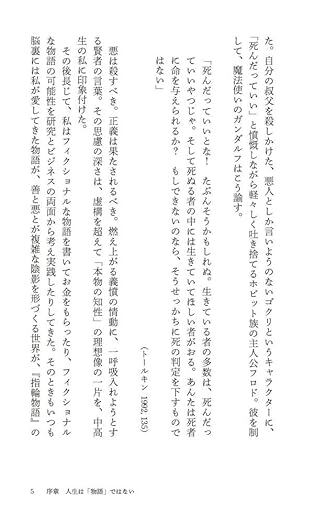 た。自分の叔父を殺しかけた、悪人としか言いようのないゴクリというキャラクターに、
「死んだっていい」と憤慨しながら軽々しく吐き捨てるホビット族の主人公フロド。彼を制
して、魔法使いのガンダルフはこう諭す。
「死んだっていいとな！　たぶんそうかもしれぬ。生きている者の多数は、死んだっ
ていいやつじゃ。そして死ぬる者の中には生きていてほしい者がおる。あんたは死者
に命を与えられるか？　もしできないのなら、そうせっかちに死の判定を下すもので
はない」
（トールキン　1992, 135）
悪は殺すべき。正義は果たされるべき。燃え上がる義憤の情動に、一呼吸入れようとす
る賢者の言葉。その思慮の深さは、虚構を超えて「本物の知性」の理想像の一片を、中高
生の私に印象付けた。
その後長じて、私はフィクショナルな物語を書いてお金をもらったり、フィクショナル
な物語の可能性を研究とビジネスの両面から考え実践したりしてきた。そのときもいつも
脳裏には私が愛してきた物語が、善と悪とが複雑な陰影を形づくる世界が、『指輪物語』の
5　序章　人生は「物語」ではない